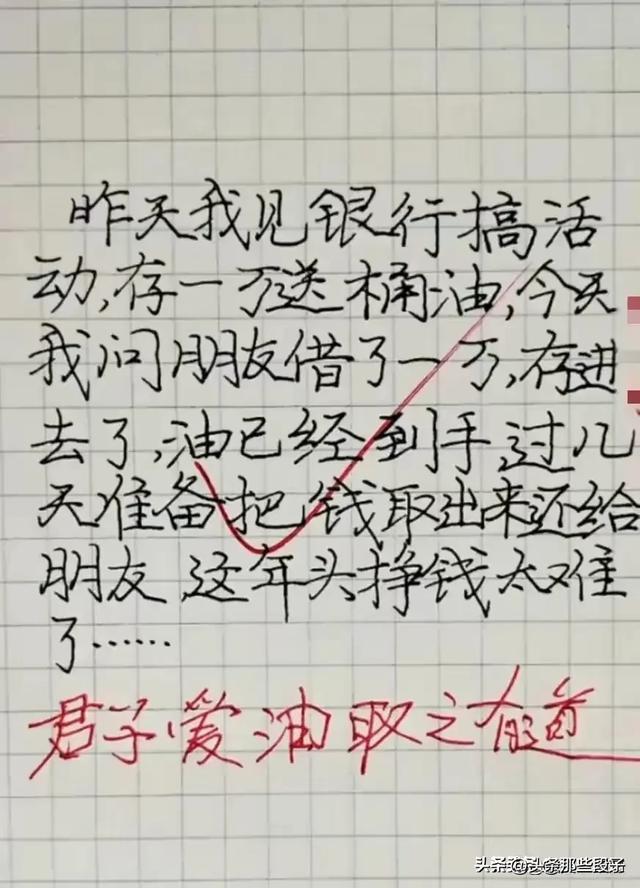 昨天我见银行搞活
动,存一万送桶油,今天
我问朋友借了一万,存进
去了,油已经到手,过几
天准备把钱取出来还给
朋友,这年头挣钱太难
了……
君子爱油取之有道